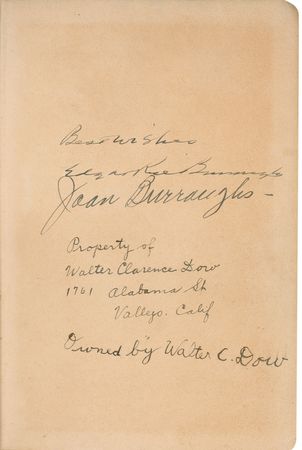 Best Wishes
Edgar Rice Burroughs
Joan Burroughs -
Property of
Walter Clarence Dow
1761 Alabama St
Vallejo. Calif
Owned by Walter C. Dow